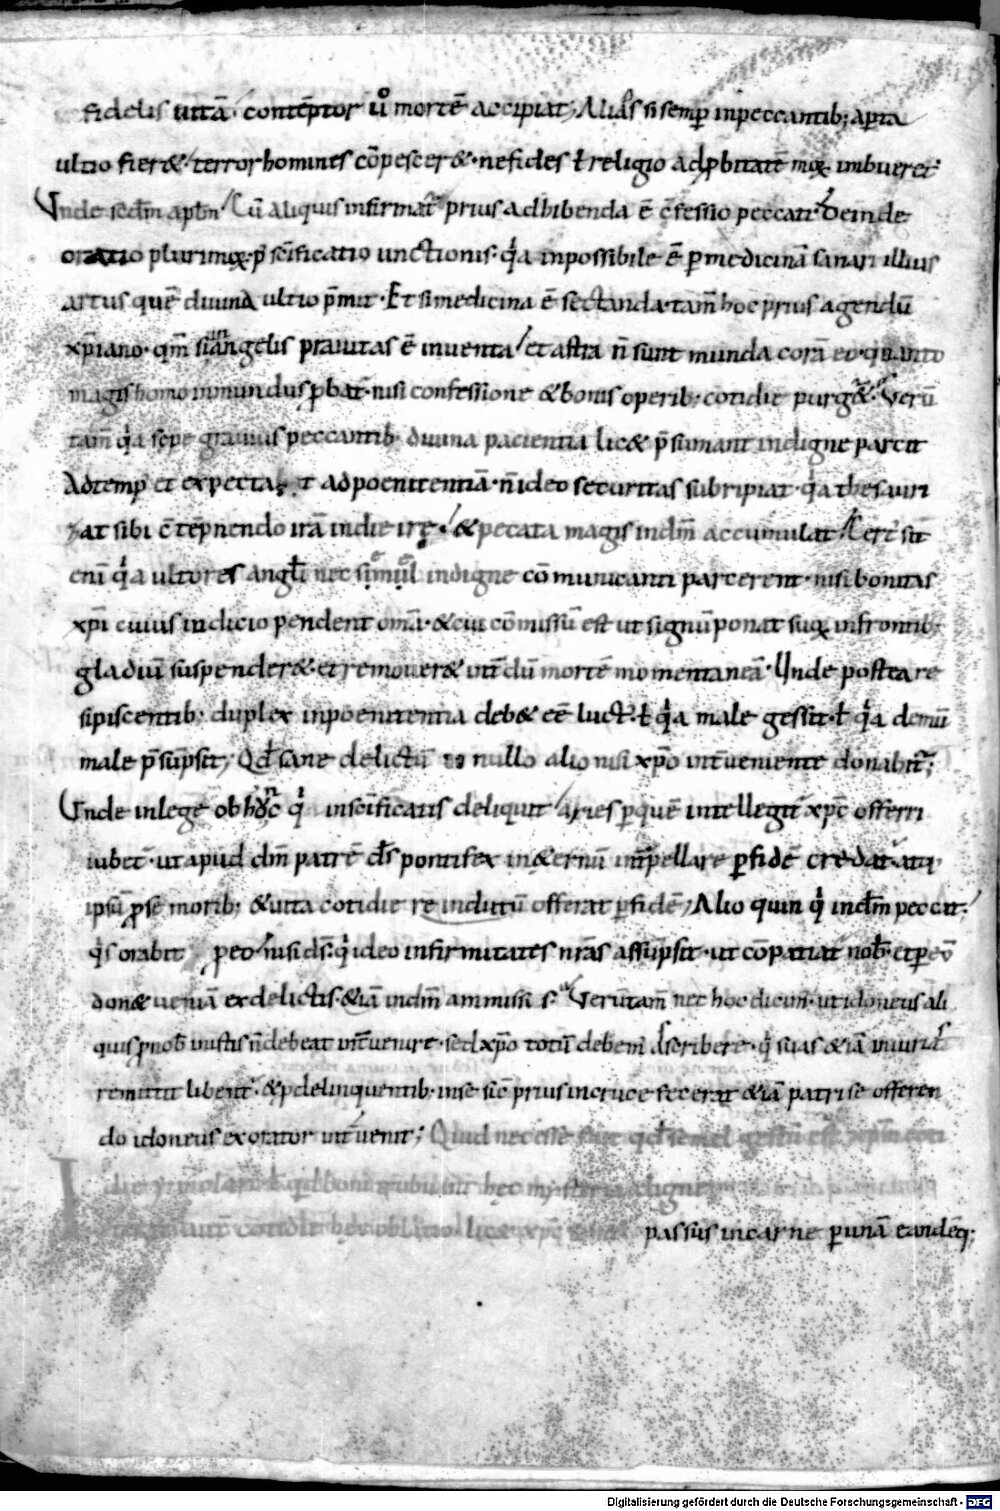 fidelis uitā· contēptor ů mortē accipiat; Alias si semp̄ inpeccantib; ap̄ta
ultio fier& terror homines cōpescer&· ne fides ł religio ad p̱bitatē mox imbueret·
Unde sec̄dm ap̄lm Cū aliquis infirmat̄ prius adhibenda ē c̄fessio peccati· deinde
oratio plurimox̨· p̄ sc̄ificatio unctionis· qͥa inpossibile ē p̱ medicinā sanari illius
artus quē diuina ultio p̄mit· Et si medicina ē sectanda· tam̄ hoc prius agendū
xp̄iano· qm̄ si in angelis prauitas ē inuenta et astra n̄ sunt munda corā eo· quanto
magis homo inmundus p̱bat̄· nisi confessione & bonis operib; cotidie purg&· Verū
tam̄ qͥa sepe grauius peccantib; diuina pacientia lic& p̄sumant indigne parcit
Ad temp; et expectat ad poenitentiā· n̄ ideo securitas subripiat· qͥa thesauri
zat sibi c̄tēpnendo irā in die irę· & pecata magis indm̄ accumulat
enī qͥa ultores angłi nec simuł indigne cōmunicanti parcerent· nisi bonitas
xp̄i cuius indicio pendent om̄a· & cui cōmissū est ut signū ponat suox̨ in frontib;
gladiū suspender& et remouer& int̄dū mortē momentaneā· Unde postea re
sipiscentib; duplex in poenitentia deb& eē luct;· ł qͥa male gessit· ł qͥa demū
male p̄sūpsit; Qd̄ sane delictū nullo alio nisi xp̄o int̄ueniente donabit̄;
Unde in lege ob hoc qͥ in sc̄ificatis deliquit aries p̱ quē intellegit̄ xp̄c offerri
iubet̄· ut apud dm̄ patrē ds̄ pontifex in &ernū int̄pellare p̱ fidē credat̄
ipsū p̱ se morib; & uita cotidie rē indutū offerat p̱ fidē; Alio quin qͥ indm̄ peccat·
qͥs orabit p̱ eo· nisi ds̄· qͥ ideo infirmitates nr̄as assūpsit· ut cōpatiat̄ nob̄· et p̱ eū
don& ueniā ex delictis· & iā indm̄ ammissis· Verūtam̄ nec hoc dicim;· ut idoneus ali
quis p̱ nob̄ iustis n̄ debeat int̄uenire· sed xp̄o totū debem; ascribere· qͥ suas & iā iniurias
remittit libent̄· & p̱ delinquentib; in se sic̄ prius in cruce fecerat & iā patri se offeren
do idoneus exorator int̄uenit; Quid necesse fuit qd̄ semel gestū est xp̄m coti
die ymolari ł qd̄ boni hec mysteria digne
cotidie hęc oblatio lic& xp̄c passus in carne p̱ unā eandēq;
Digitalisierung gefördert durch die Deutsche Forschungsgemeinschaft - DFG